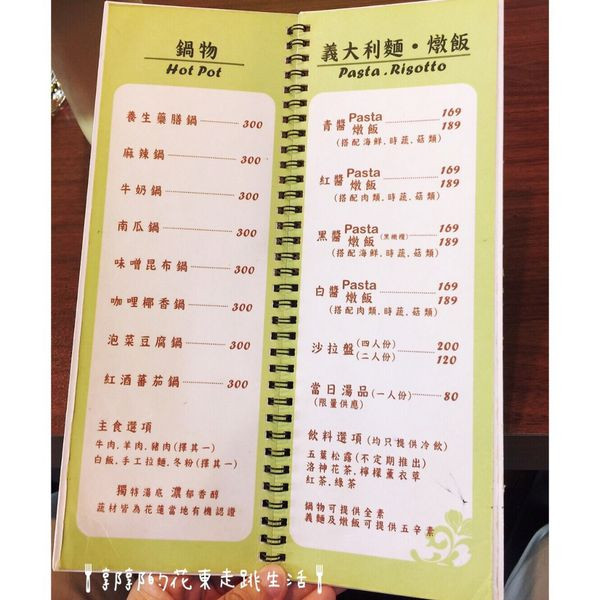 鍋物
Hot Pot
養生藥膳鍋 300
麻辣鍋 300
牛奶鍋 300
南瓜鍋 300
味噌昆布鍋 300
咖哩椰香鍋 300
泡菜豆腐鍋 300
紅酒蕃茄鍋 300
主食選項
牛肉.羊肉.豬肉(擇其一)
白飯.手工拉麵.冬粉(擇其一)
獨特湯底 濃郁香醇
蔬材皆為花蓮當地有機認證
義大利麵・燉飯
Pasta.Risotto
青醬 Pasta 169
燉飯 189
(搭配海鮮.時蔬.菇類)
紅醬 Pasta 169
燉飯 189
(搭配肉類.時蔬.菇類)
黑醬 Pasta (黑橄欖) 169
燉飯 189
(搭配海鮮.時蔬.菇類)
白醬 Pasta 169
燉飯 189
(搭配肉類.時蔬.菇類)
沙拉盤 (四人份) 200
(二人份) 120
當日湯品(一人份) 80
(限量供應)
飲料選項 (均只提供冷飲)
五葉松露(不定期推出)
洛神花茶.檸檬薰衣草
紅茶.綠茶
鍋物可提供全素
義麵及燉飯可提供五辛素
郭郭的花東走跳生活